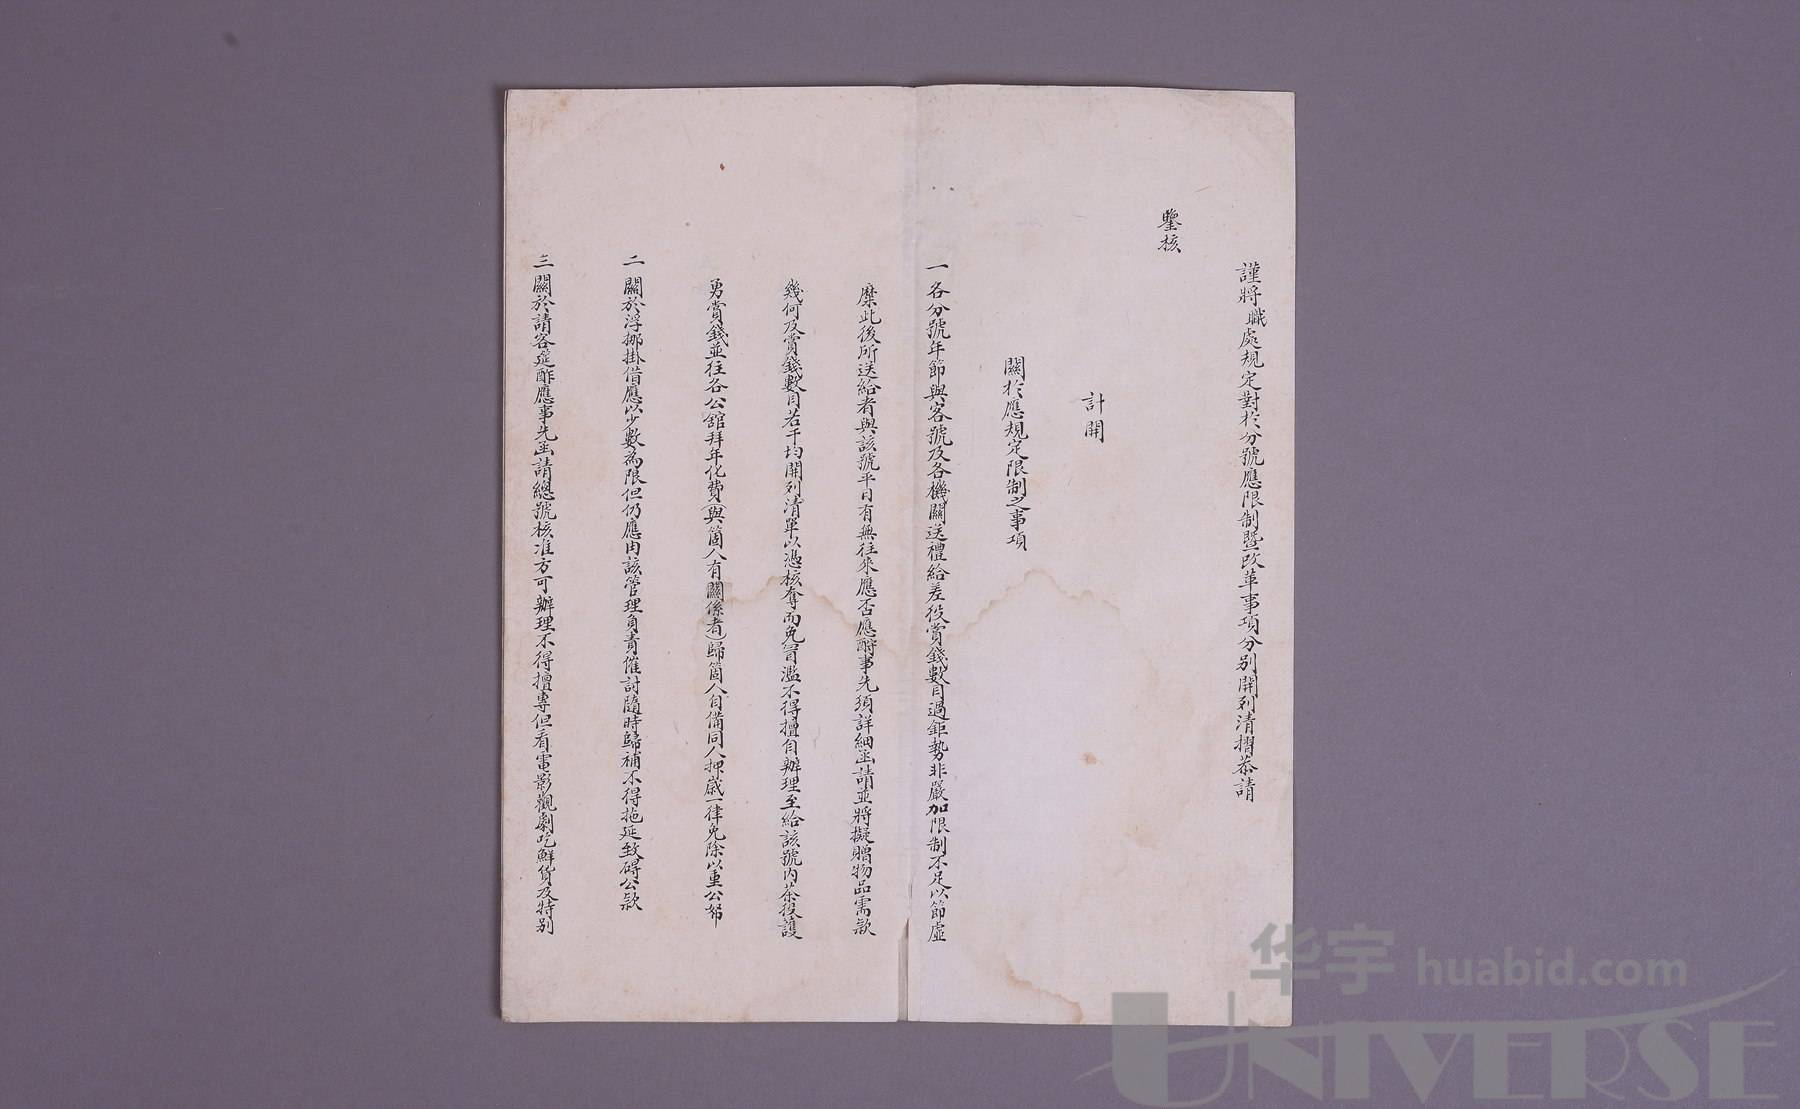 謹將職處規定對於分號應限制暨改革事項分別開列清摺恭請
鑒核
計開
關於應規定限制之事項
一各分號年節與客號及各機關送禮給差役賞錢數目過鉅勢非嚴加限制不足以節虛
糜此後所送給者與該號平日有無往來應否應酧事先須詳細函請並將擬贈物品需款
幾何及賞錢數目若干均開列清單以憑核奪而免冒濫不得擅自辦理至給該號內茶役護
勇賞錢並往各公舘拜年化費(與箇人有關係者)歸箇人自備同人押歲一律免除以重公帑
二關於浮挪掛借應以少數為限但仍應由該管理負責催討隨時歸補不得拖延致碍公款
三關於請客筵酢應事先函請總號核准方可辦理不得擅專但看電影觀劇吃鮮貨及特別
华宇 huabid.com
UNIVERSE